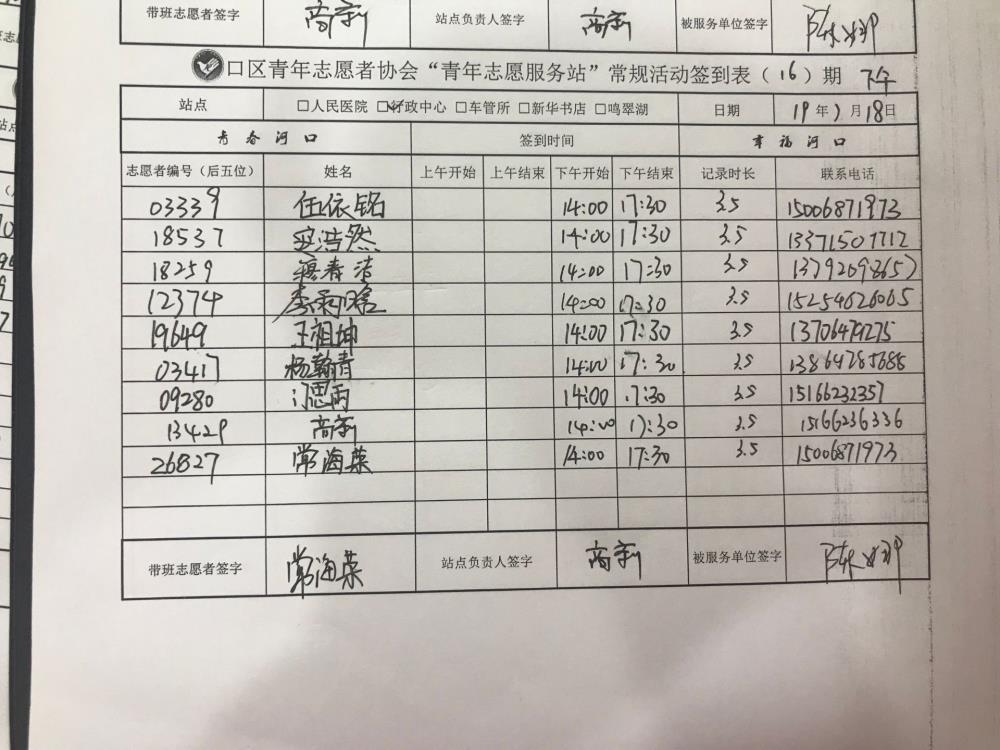 带班志愿者签字 商新 站点负责人签字 商新 被服务单位签字
口区青年志愿者协会“青年志愿服务站”常规活动签到表（16）期 下午
站点 □人民医院 ☑行政中心 □车管所 □新华书店 □鸣翠湖 日期 19年 月18日
青春河口 签到时间 幸福河口
志愿者编号（后五位） 姓名 上午开始 上午结束 下午开始 下午结束 记录时长 联系电话
03339 伍依铭 14:00 17:30 3.5 15006871973
18537 浩然 14:00 17:30 3.5 13371501712
18259 春洁 14:00 17:30 3.5 13792098657
12374 李雨晗 14:00 17:30 3.5 15254626065
19649 王祖坤 14:00 17:30 3.5 13706479275
03417 杨翰青 14:00 17:30 3.5 13864785688
09280 门思雨 14:00 17:30 3.5 15166232357
13429 商新 14:00 17:30 3.5 15166236336
26827 常海菜 14:00 17:30 3.5 15006871973
带班志愿者签字 常海菜 站点负责人签字 商新 被服务单位签字